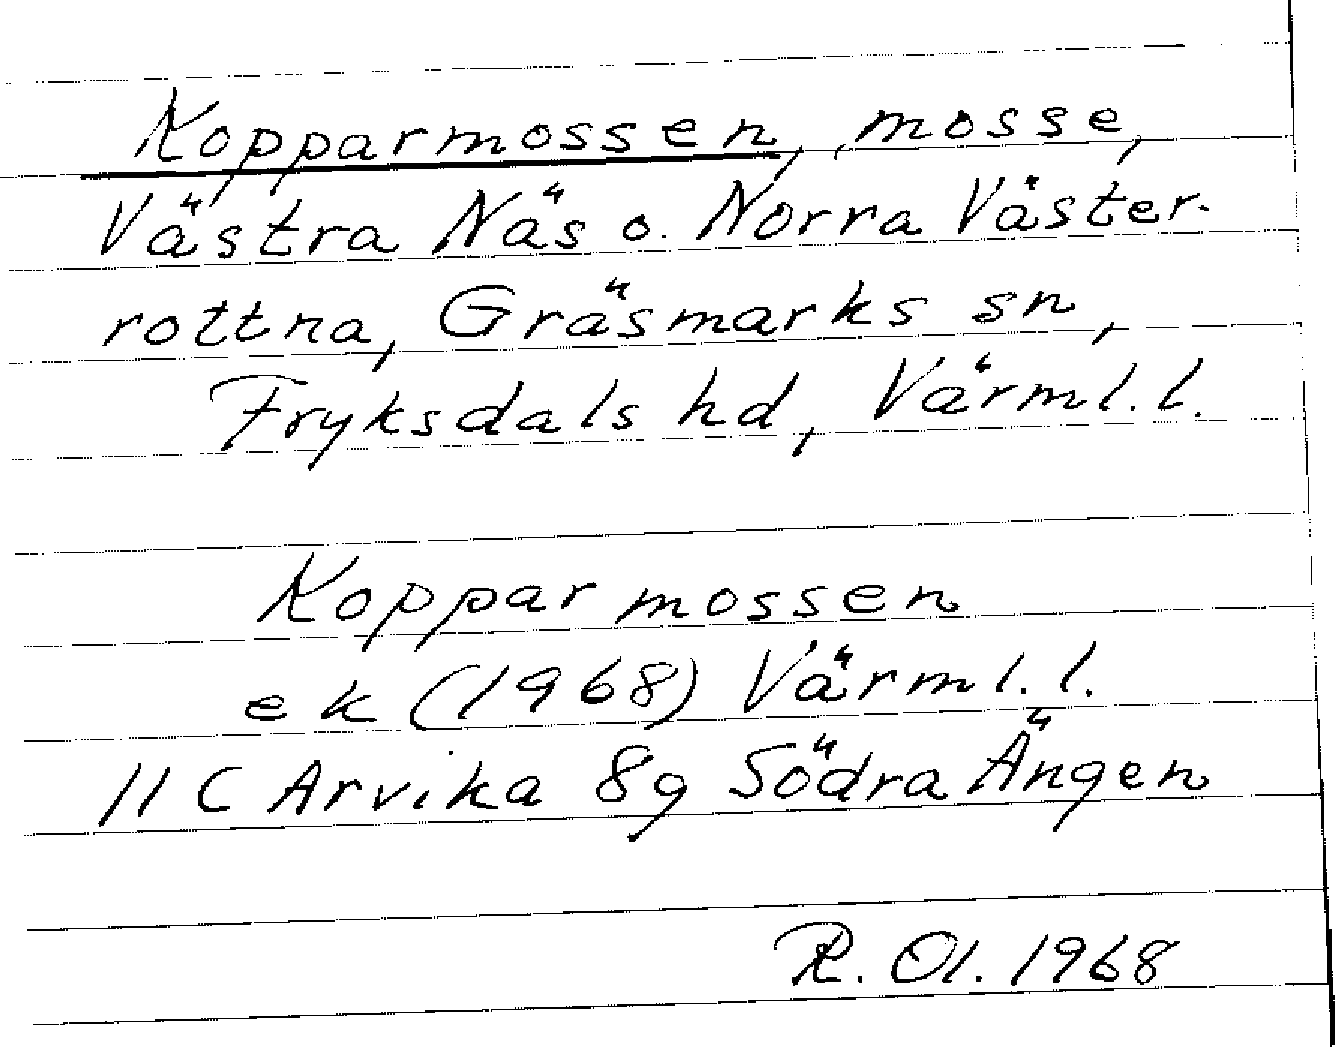 Kopparmossen, mosse,
Västra Näs o. Norra Väster-
rottna, Gräsmarks sn,
Fryksdals hd, Värml. l.
Kopparmossen
ek (1968) Värml. l.
11 C Arvika 8g Södra Ängen
R. Ol. 1968